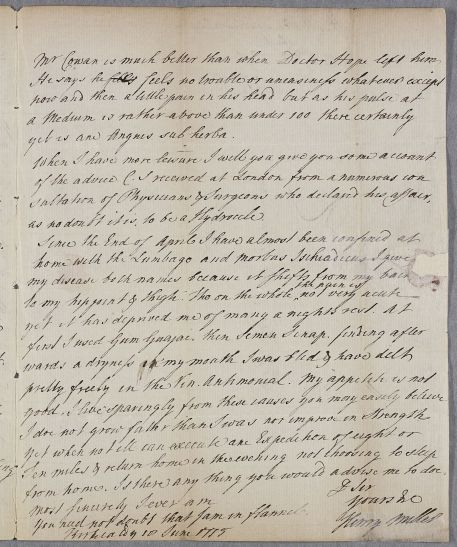 Mr Cowan is much better than when Doctor Hope left him.
He says he feels feels no trouble or uneasiness whatever except
now and then a little pain in his head but as his pulse at
a Medium is rather above than under 100 there certainly
yet is ane Angues sub herba.
When I have more leisure I will you give you some account
of the advice C. I received at London from a numerous con
sultation of Physicians & Surgeons who declared his affair,
as no doubt it is, to be a Hydrocele
Since the End of April I have almost been confined at
home with the Lumbago and morbus Ischiadicus I give
my disease both names because it shifts from my back
to my hip joint & thigh. Tho on the whole the pain is not very acute
yet it has deprived me of many a nights rest. at
first I used Gum Guajac. then Semen Sinap. finding after
wards a dryness in my mouth I was bled & have delt
pretty freely in the Vin. Antimonial. My appetite is not
good. I live sparingly from these causes you may easily believe
I do not grow fatter than I was nor improve in Strength
Yet when not ill can execute ane Expedition of eight or
Ten miles & return home in the evening not choosing to sleep
from home. Is there any thing you would advise me to doe.
most sincerely I ever am
D Sir
Yours &c
You need not doubt that I am in flannel.
Henry Miller
Kirkcaldy 10 June 1775